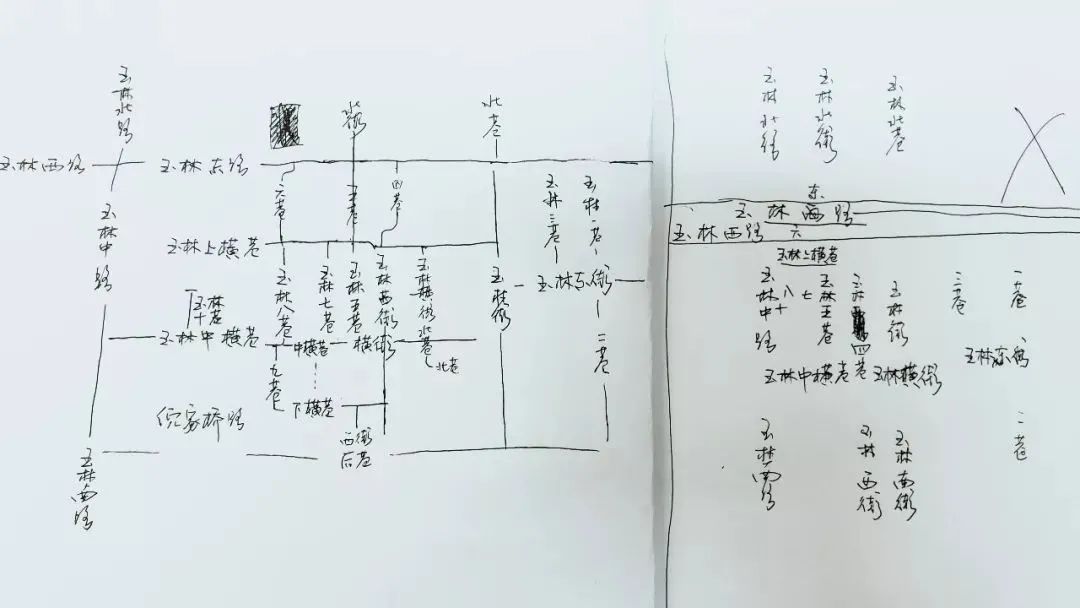 玉林北路
北街
北巷
玉林西路
玉林东路
六巷
五巷
四巷
玉林三巷
玉林一巷
玉林中路
玉林上横巷
玉林八巷
玉林七巷
玉林五巷
玉林西街
玉林横街北巷
玉林街
玉林东街
玉林十巷
玉林中横巷
中横巷
横街
北巷
二巷
九巷
下横巷
倪家桥路
西街后巷
玉林南路
玉林北路
玉林北街
玉林北巷
东
玉林西路
玉林西路
六
玉林上横巷
玉林中路
八
十
七
玉林五巷
玉林
四巷
玉林街
三巷
一巷
玉林东街
玉林中横巷
玉林横街
玉林南路
玉林西街
玉林南街
二巷